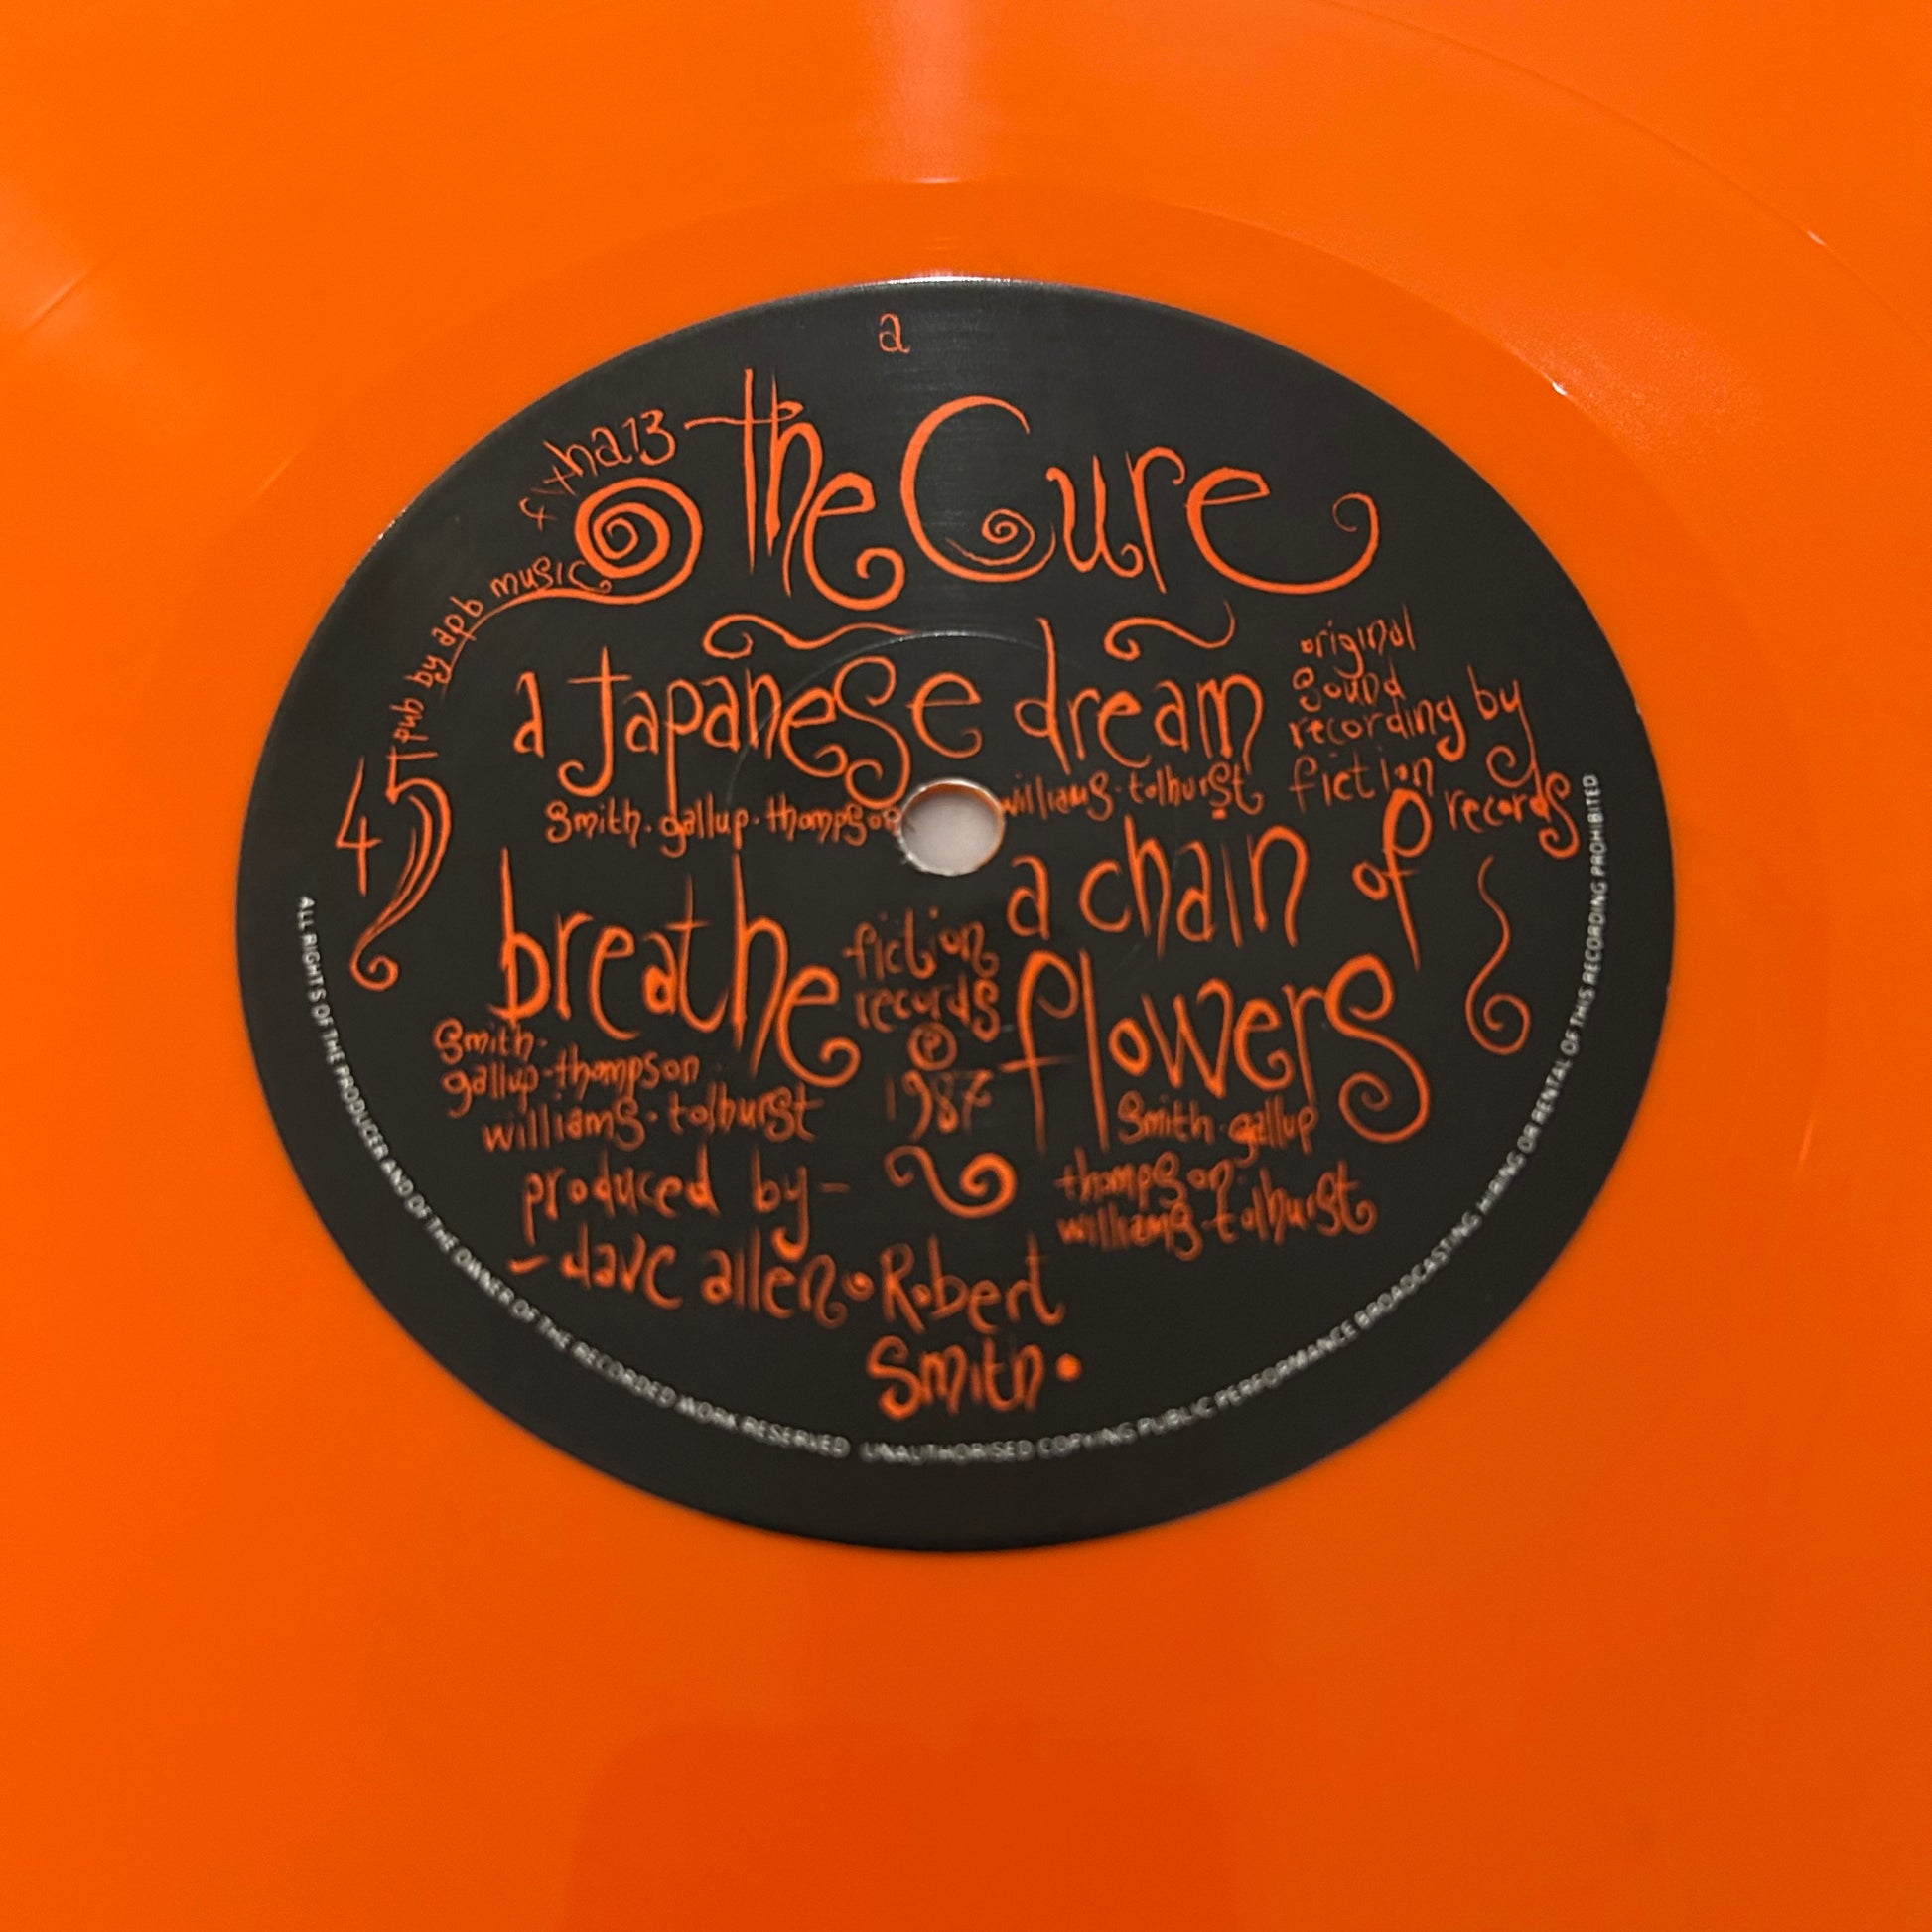 a
fixha13
the Cure
pub by apb music
45
a Japanese dream
smith · gallup · thompson williams · tolhurst
original
sound
recording by
fiction records
breathe
smith ·
gallup · thompson
williams · tolhurst
fiction
records
℗
1987
a chain of
flowers
smith · gallup
thompson ·
williams · tolhurst
produced by –
– dave allen • Robert
Smith •
ALL RIGHTS OF THE PRODUCER AND OF THE OWNER OF THE RECORDED WORK RESERVED UNAUTHORISED COPYING PUBLIC PERFORMANCE BROADCASTING HIRING OR RENTAL OF THIS RECORDING PROHIBITED